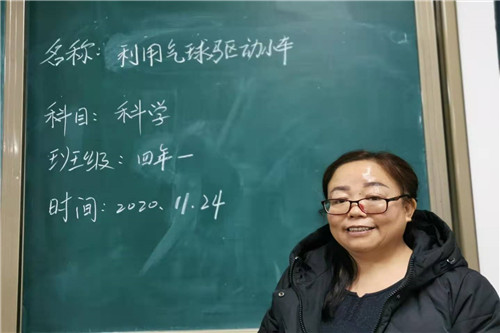 名称：利用气球驱动小车
科目：科学
班级：四年一
时间：2020.11.24